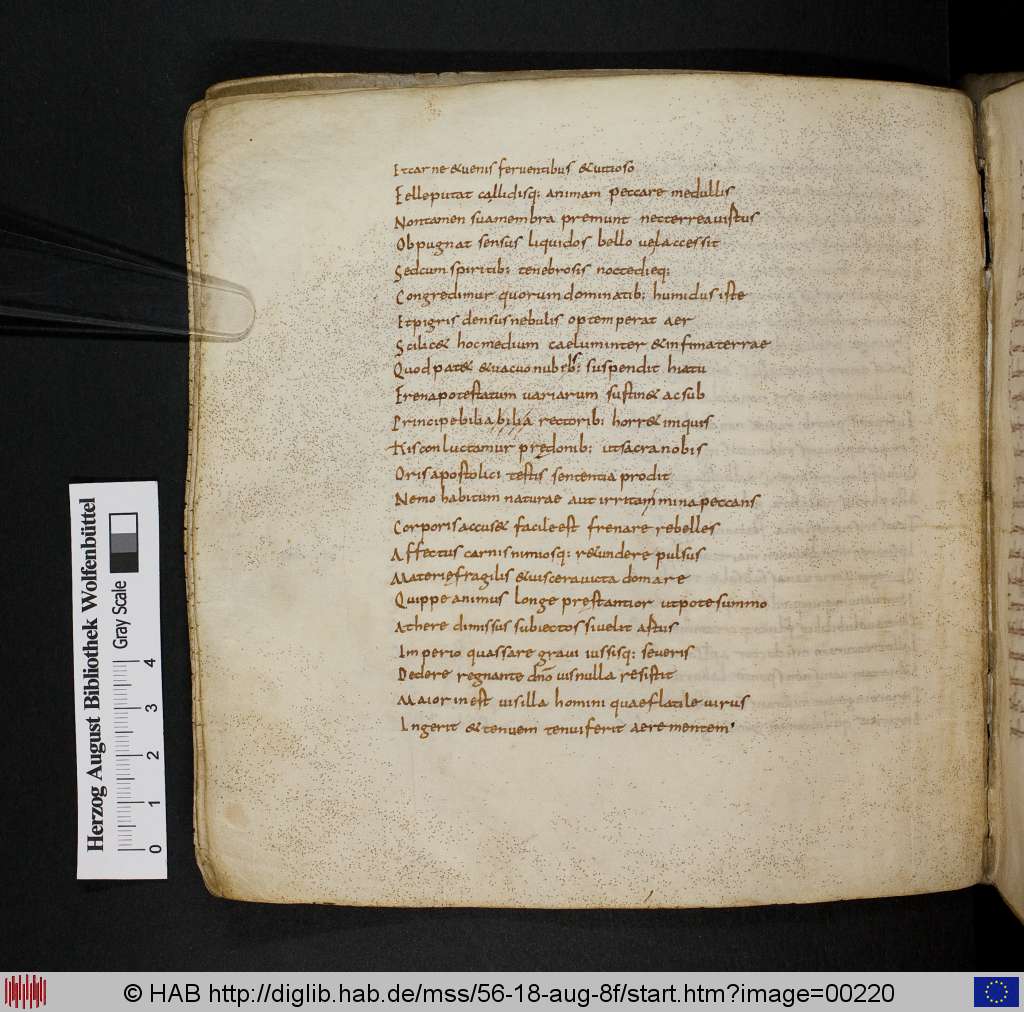 Et carne & venis ferventibus & vitioso
Felle putat callidisq: animam peccare medullis
Non tamen sua membra premunt nec terrea uirtus
Obpugnat sensus liquidos bello vel accessit
Sed cum spiritib: tenebrosis nocte dieq;
Congredimur quorum dominatib: humidus iste
Et pigris densus nebulis optemperat aer
Scilic& hoc medium caelum inter & infima terrae
Quod pat& & vacuo nubibs: suspendit hiatu
Frena potestatum variarum sustin& ac sub
Principe bilia bilia rectorib: horr& iniquis
His conluctamur prędonib: ut sacra nobis
Oris apostolici testis sententia prodit
Nemo habitum naturae aut irritamina peccans
Corporis accus& facile est frenare rebelles
Affectus carnis nimiosq: r&undere pulsus
Materię fragilis & viscera uicta domare
Quippe animus longe prestantior utpote summo
Athere dimissus subiectos si velit astus
Imperio quassare gravi iussisq: severis
Dedere regnante dn̄o vis nulla resistit
Maior inest vis illa homini quae flatile virus
Ingerit & tenuem tenui ferit aere mentem
Herzog August Bibliothek Wolfenbüttel
Gray Scale
0 1 2 3 4
© HAB http://diglib.hab.de/mss/56-18-aug-8f/start.htm?image=00220